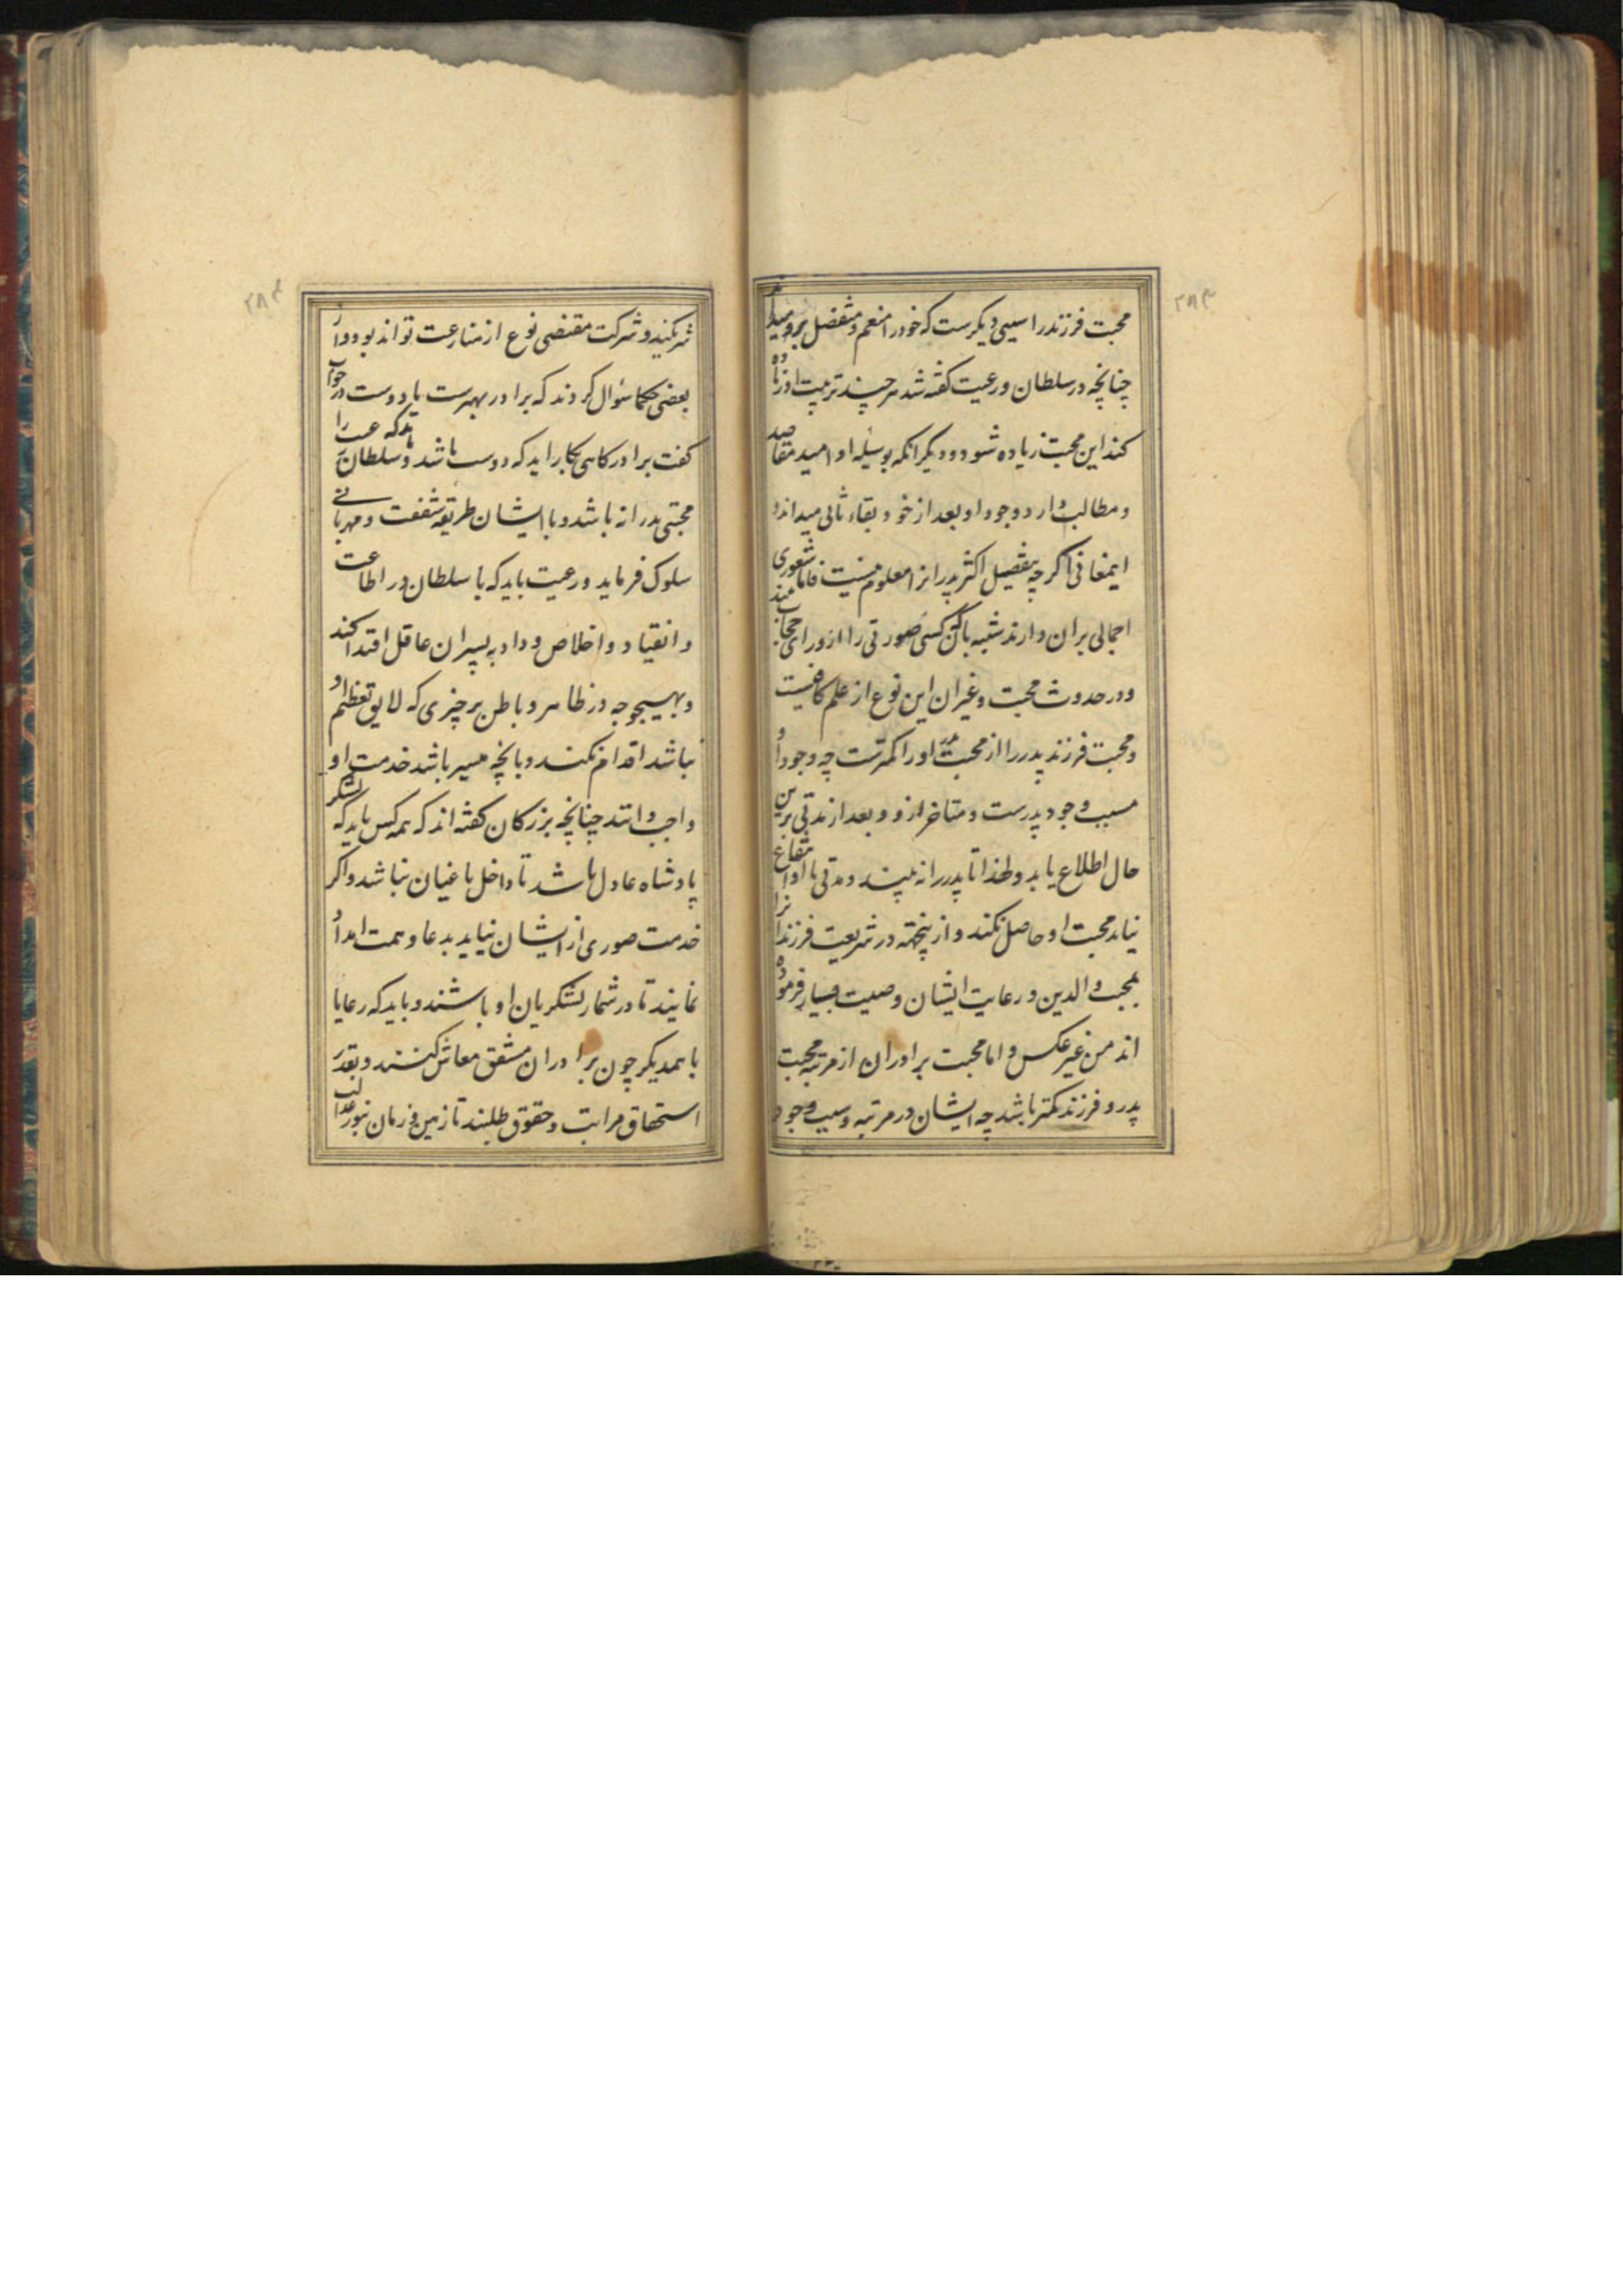 ۲۸۳
محبت فرزند را سببی دیکرست که خود را منعم و متفضل برو میداند
چنانچه در سلطان و رعیت کفته شد هر چند تربیت او زیاده
کند این محبت زیاده شود و دیکر انکه بوسیله او امید مقاصد
و مطالب دارد و وجود او بعد از خود بقاء ثانی میداند و
اینمعانی اکرچه بتفصیل اکثر پدرانرا معلوم نیست فاما شعوری
اجمالی بران دارند شبیه بانکه کسی صورتی را از ورای حجاب بیند
و در حدوث محبت و غیر ان این نوع از علم کافیست
و محبت فرزند پدر را از محبت پدر او را کمترست چه وجود او
مسبب وجود پدرست و متاخر ازو و بعد از مدتی برین
حال اطلاع یابد و لهذا تا پدر را نه بیند و مدتی با او انتفاع
نیابد محبت او حاصل نکند و ازینجهته در شریعت فرزندانرا
بمحبت والدین و رعایت ایشان وصیت بسیار فرموده
اند من غیر عکس و اما محبت برادران از مرتبه محبت
پدر و فرزند کمتر باشد چه ایشان در مرتبه و سبب وجود
۲۸۴
شریکند و شرکت مقتضی نوع از منازعت تواند بود و از
بعضی حکما سؤال کردند که برادر بهترست یا دوست در جواب
کفت برادر کاهی بکار اید که دوست باشد و سلطان باید که رعیت را
محبتی پدرانه باشد و با ایشان طریقه شفقت و مهربانی
سلوک فرماید و رعیت باید که با سلطان در اطاعت
و انقیاد و اخلاص و وداد به پسران عاقل اقتدا کند
و بهیچوجه در ظاهر و باطن بر چیزی که لایق تعظیم او
نباشد اقدام نکنند و بانچه میسر باشد خدمت او
واجب دانند چنانچه بزرکان کفته اند که همه کس باید که لشکر
پادشاه عادل باشد تا داخل باغیان نباشد و اکر
خدمت صوری از ایشان نیاید بدعا و همت امداد
نمایند تا در شمار لشکریان او باشند و باید که رعایا
با همدیکر چون برادران مشفق معاش کنند و بقدر
استحقاق مراتب و حقوق طلبند تا زمین و زمان بنور عدالت